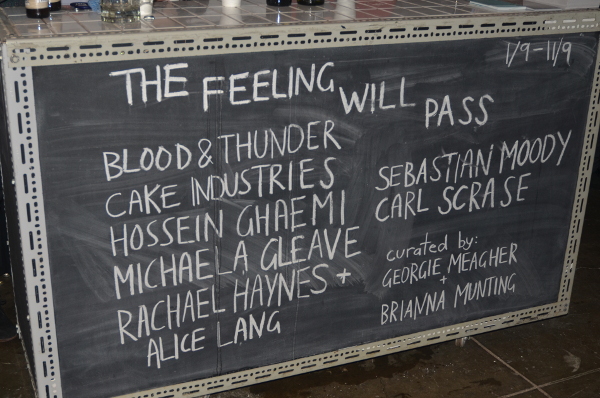 1/9-11/9
THE FEELING WILL PASS
BLOOD & THUNDER
CAKE INDUSTRIES
HOSSEIN GHAEMI
MICHAELA GLEAVE
RACHAEL HAYNES +
ALICE LANG
SEBASTIAN MOODY
CARL SCRASE
curated by:
GEORGIE MEAGHER
+
BRIANNA MUNTING